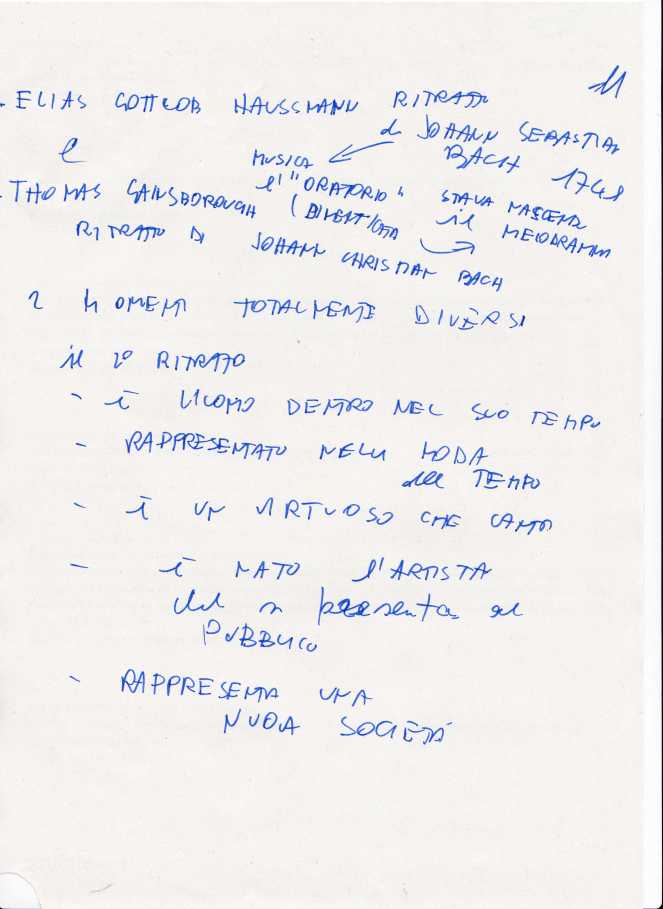 11
- ELIAS GOTTLOB HAUSSMANN RITRATTO
di JOHANN SEBASTIAN
BACH 1741
e
MUSICA
l' "ORATORIO" STAVA NASCENDO
- THOMAS GAINSBOROUGH (DIVENTATA il MELODRAMMA
RITRATTO DI JOHANN CHRISTIAN BACH
2 MOMENTI TOTALMENTE DIVERSI
il 2° RITRATTO
- È L'UOMO DENTRO NEL SUO TEMPO
- RAPPRESENTATO NELLA MODA
del TEMPO
- È UN VIRTUOSO CHE CANTA
- È NATO l'ARTISTA
che si presenta al
PUBBLICO
- RAPPRESENTA UNA
NUOVA SOCIETÀ